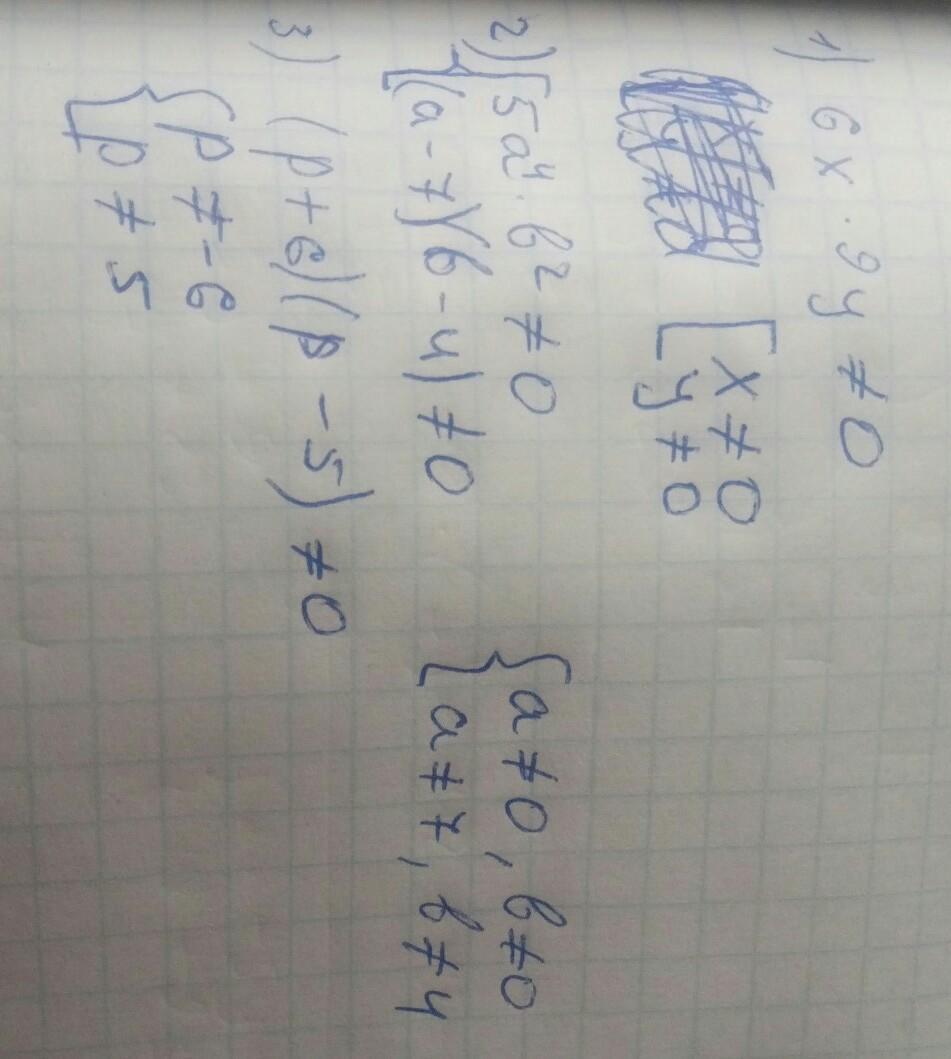 1) 6x · 9y ≠ 0
[x ≠ 0
y ≠ 0
2) {5a⁴ · b² ≠ 0
(a - 7)(b - 4) ≠ 0
{a ≠ 0, b ≠ 0
a ≠ 7, b ≠ 4
3) (p + 6)(p - 5) ≠ 0
{p ≠ -6
p ≠ 5